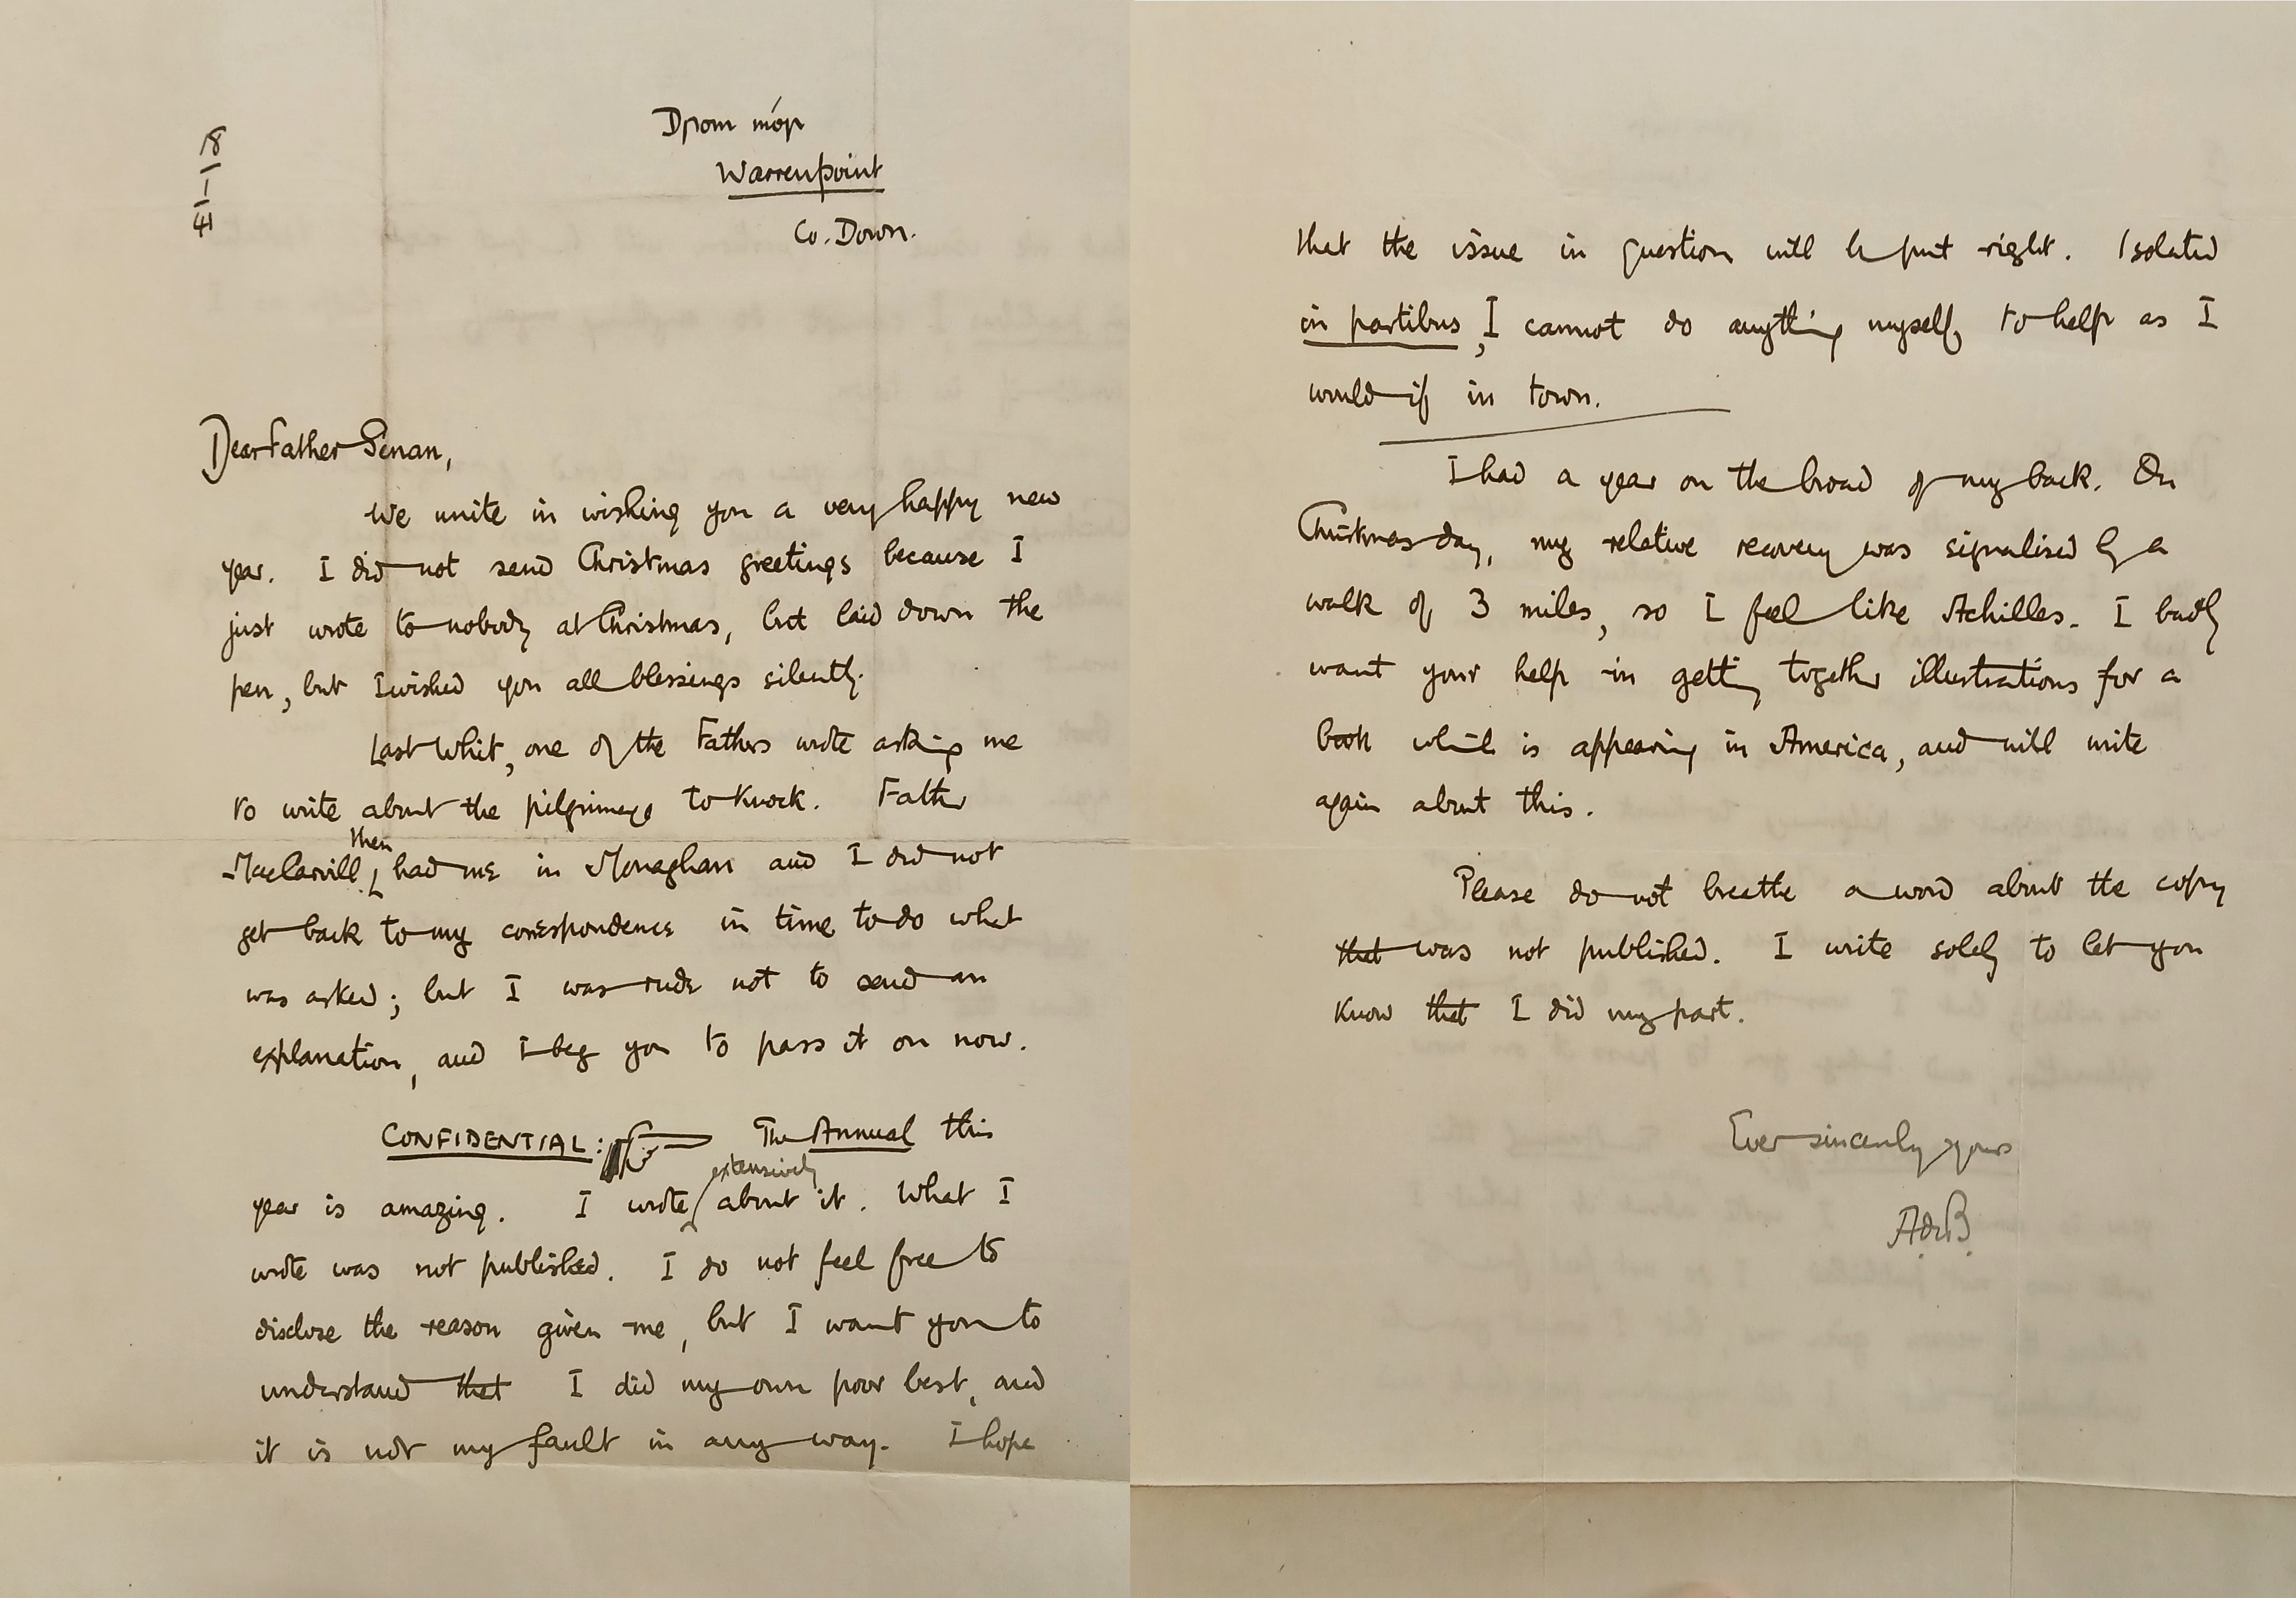 18-1-41
Drom mór
Warrenpoint
Co. Down.
Dear Father Senan,
We unite in wishing you a very happy new
year. I did not send Christmas greetings because I
just wrote to nobody at Christmas, but laid down the
pen, but I wished you all blessings silently.
Last Whit, one of the Fathers wrote asking me
to write about the pilgrimage to Knock. Father
then
MacCarvill had me in Monaghan and I did not
get back to my correspondence in time to do what
was asked; but I was rude not to send an
explanation, and I beg you to pass it on now.
CONFIDENTIAL: ☞ The Annual this
extensively
year is amazing. I wrote about it. What I
wrote was not published. I do not feel free to
disclose the reason given me, but I want you to
understand that I did my own poor best, and
it is not my fault in any way. I hope
that the issue in question will be put right. Isolated
in partibus, I cannot do anything myself to help as I
would if in town.
I had a year on the broad of my back. On
Christmas day, my relative recovery was signalised by a
walk of 3 miles, so I feel like Achilles. I badly
want your help in getting together illustrations for a
book which is appearing in America, and will write
again about this.
Please do not breathe a word about the copy
that was not published. I write solely to let you
know that I did my part.
Ever sincerely yours
A de B.